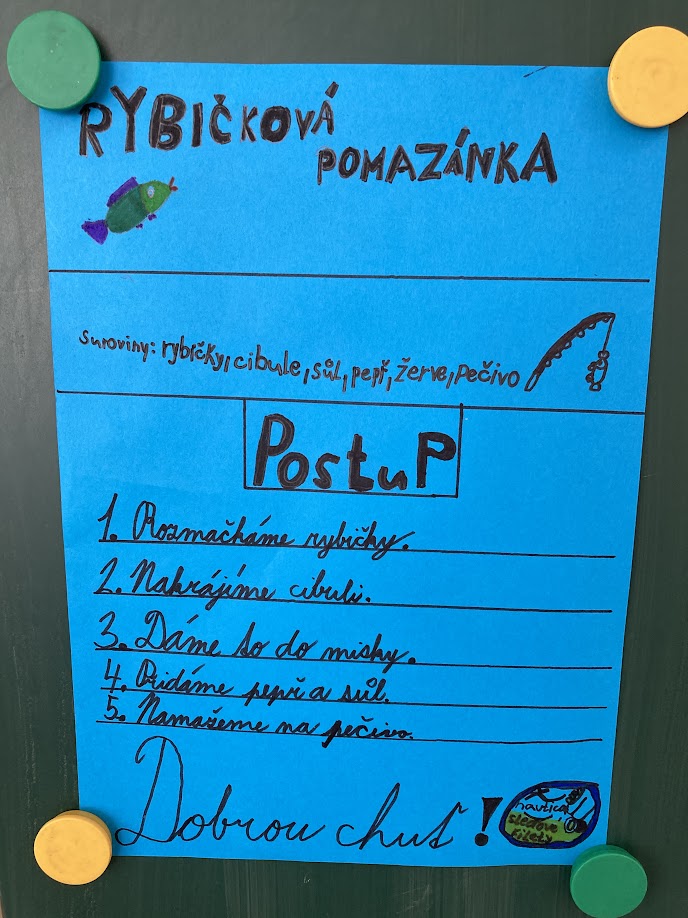 RYBIČKOVÁ
POMAZÁNKA
Suroviny: rybičky, cibule, sůl, pepř, žerve, pečivo
PostuP
1. Rozmačkáme rybičky.
2. Nakrájíme cibuli.
3. Dáme to do misky.
4. Přidáme pepř a sůl.
5. Namažeme na pečivo.
Dobrou chuť!
nautica
sleďove
filety